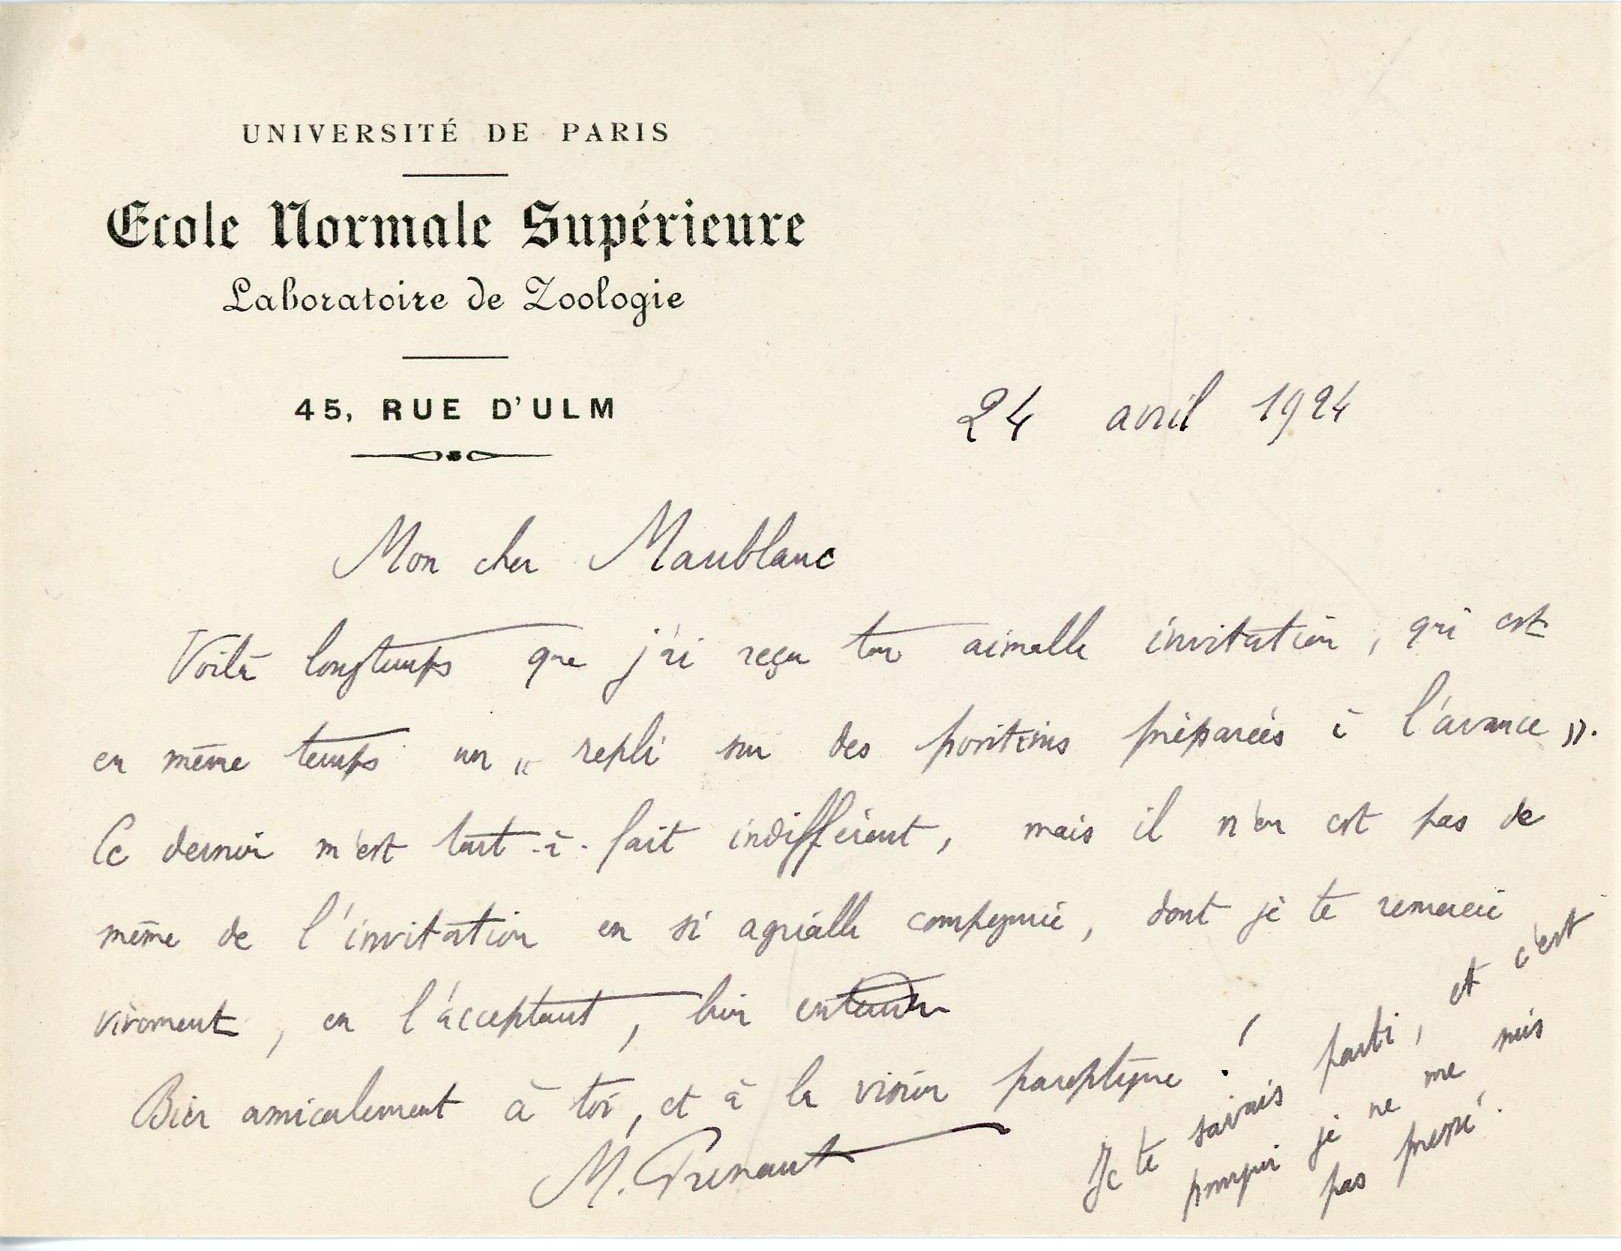 UNIVERSITÉ DE PARIS
Ecole Normale Supérieure
Laboratoire de Zoologie
45, RUE D'ULM
24 avril 1924
Mon cher Maublanc
Voilà longtemps que j'ai reçu ton aimable invitation, qui est
en même temps un « repli sur des positions préparées à l'avance ».
Ce dernier m'est tout-à-fait indifférent, mais il n'en est pas de
même de l'invitation en si agréable compagnie, dont je te remercie
vivement, en l'acceptant, bien entendu
Bien amicalement à toi, et à la vision paroptique !
M. Prenant
Je te savais parti, et c'est
pourquoi je ne me suis
pas pressé.